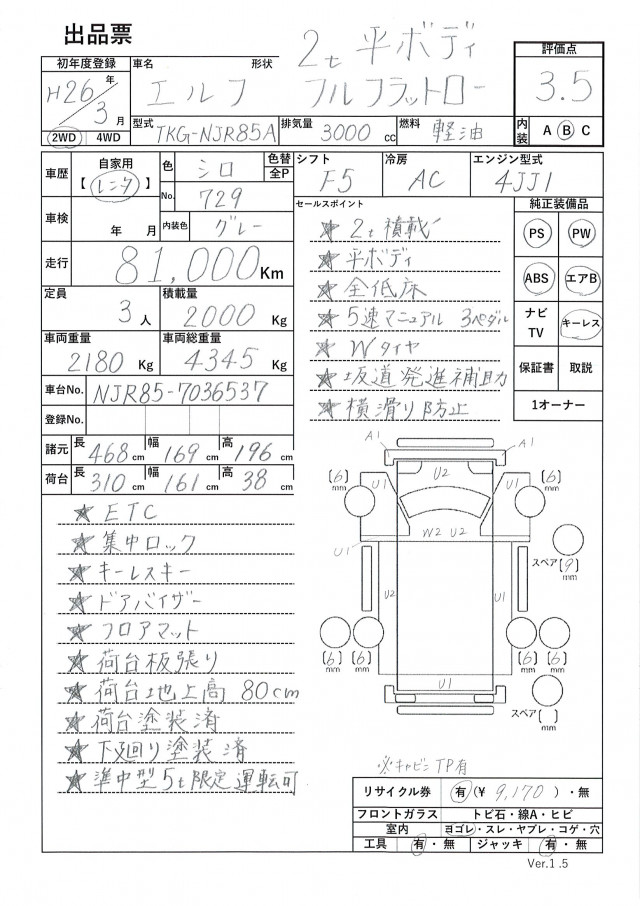 出品票
初年度登録 車名 形状
H26年 3月
エルフ
2t 平ボディ
フルフラットロー
評価点
3.5
2WD 4WD
型式 TKG-NJR85A 排気量 3000 cc 燃料 軽油
内装 A B C
車歴 自家用 【レンタ】
色 シロ 色替 全P
No. 729
シフト F5 冷房 AC エンジン型式 4JJ1
車検 年 月
内装色 グレー
走行 81,000 Km
定員 3 人 積載量 2000 Kg
車両重量 2180 Kg 車両総重量 4345 Kg
車台No. NJR85-7036537
登録No.
諸元 長 468 cm 幅 169 cm 高 196 cm
荷台 長 310 cm 幅 161 cm 高 38 cm
セールスポイント
★ 2t 積載
★ 平ボディ
★ 全低床
★ 5速マニュアル 3ペダル
★ Wタイヤ
★ 坂道発進補助
★ 横滑り防止
純正装備品
PS PW
ABS エアB
ナビ TV キーレス
保証書 取説
1オーナー
★ ETC
★ 集中ロック
★ キーレスキー
★ ドアバイザー
★ フロアマット
★ 荷台板張り
★ 荷台地上高 80cm
★ 荷台塗装済
★ 下廻り塗装済
★ 準中型5t限定運転可
A1 A1
[6] mm U1 U2 U1 [6] mm
W2 U2
U1
スペア [9] mm
U2 U1 U1
[6] mm [6] mm [6] mm [6] mm
U1
スペア [ ] mm
※キャビン TP有
リサイクル券 有 (¥ 9,170 )・無
フロントガラス トビ石・線A・ヒビ
室内 ヨゴレ・スレ・ヤブレ・コゲ・穴
工具 有・無 ジャッキ 有・無
Ver.1.5